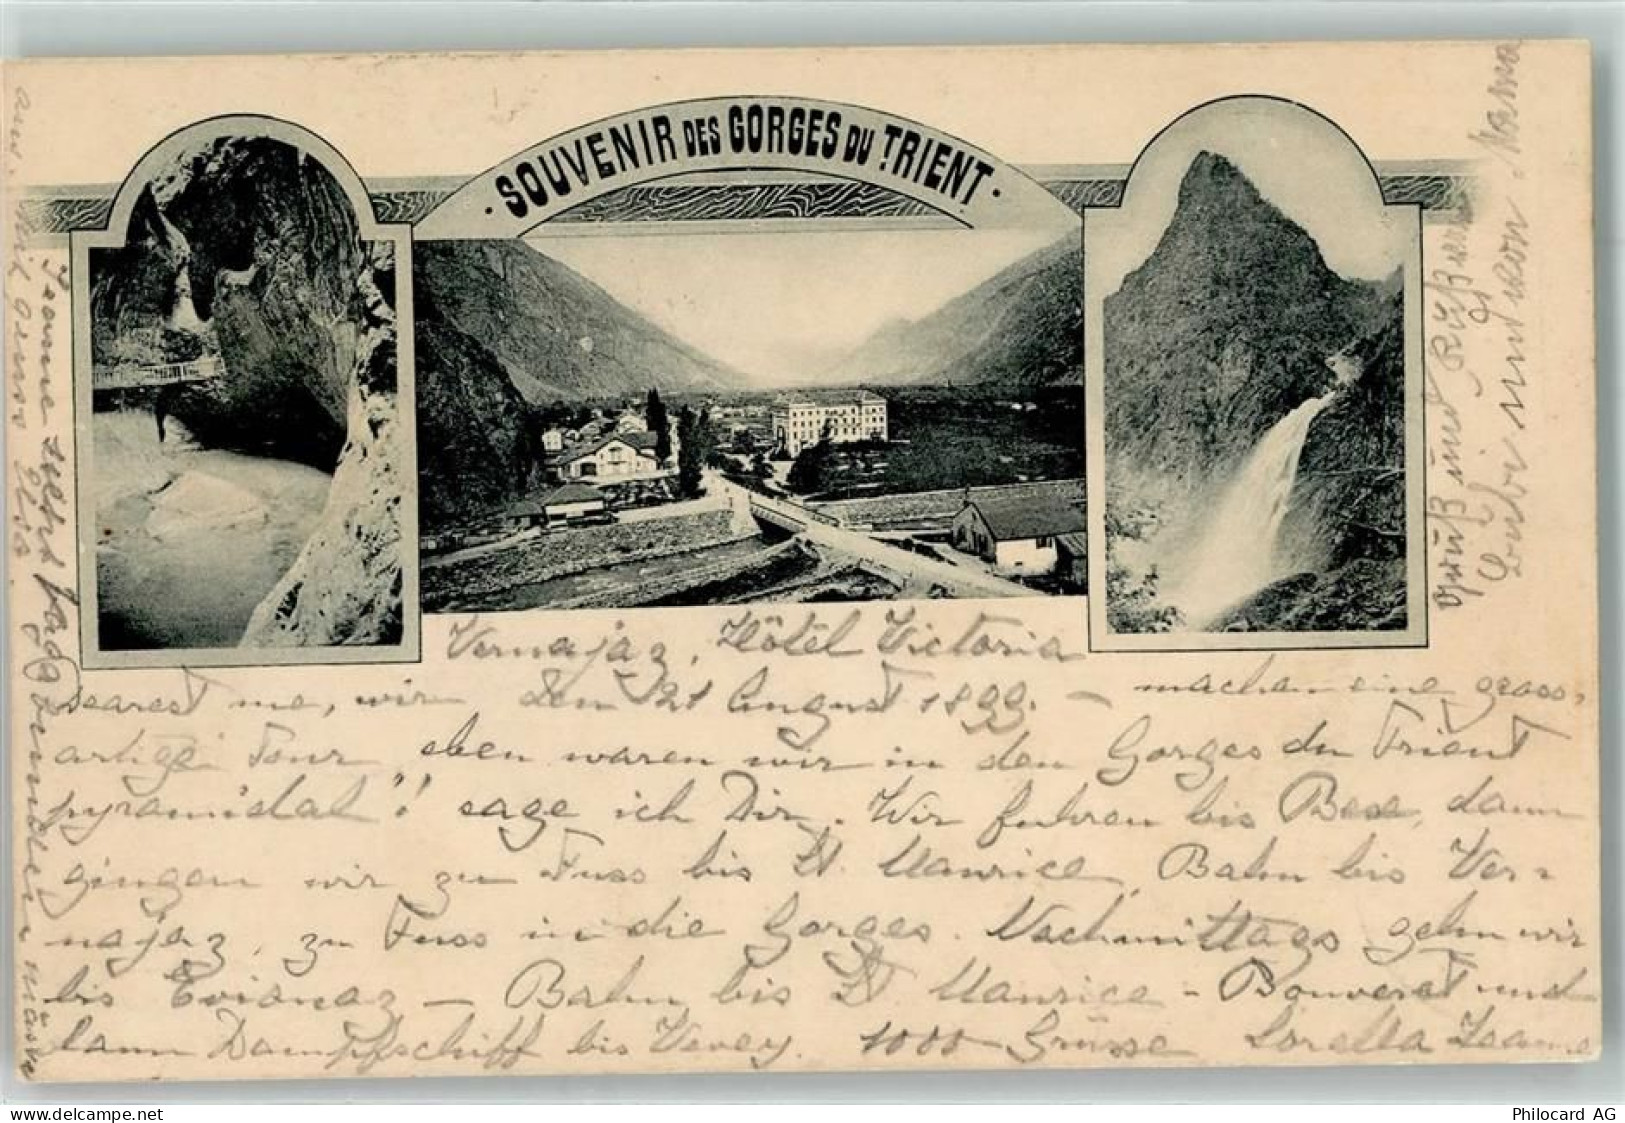 · SOUVENIR DES GORGES DU TRIENT ·
Vernajaz, Hôtel Victoria
Dearest me, wir den 21 August 1899. – machen eine gross-
artige Tour, eben waren wir in den Gorges du Trient
"pyramidal"! sage ich Dir. Wir fuhren bis Bex, dann
gingen wir zu Fuss bis St. Maurice, Bahn bis Ver-
najaz, zu Fuss in die Gorges. Nachmittags gehn wir
bis Evionaz – Bahn bis St Maurice – Bouveret und
dann Dampfschiff bis Vevey. 1000 Grüsse Loretta Jeanne
Gruß und Küsse
Mama
mir genso Elis.
Jeanne
müssen
Philocard AG
delcampe.net